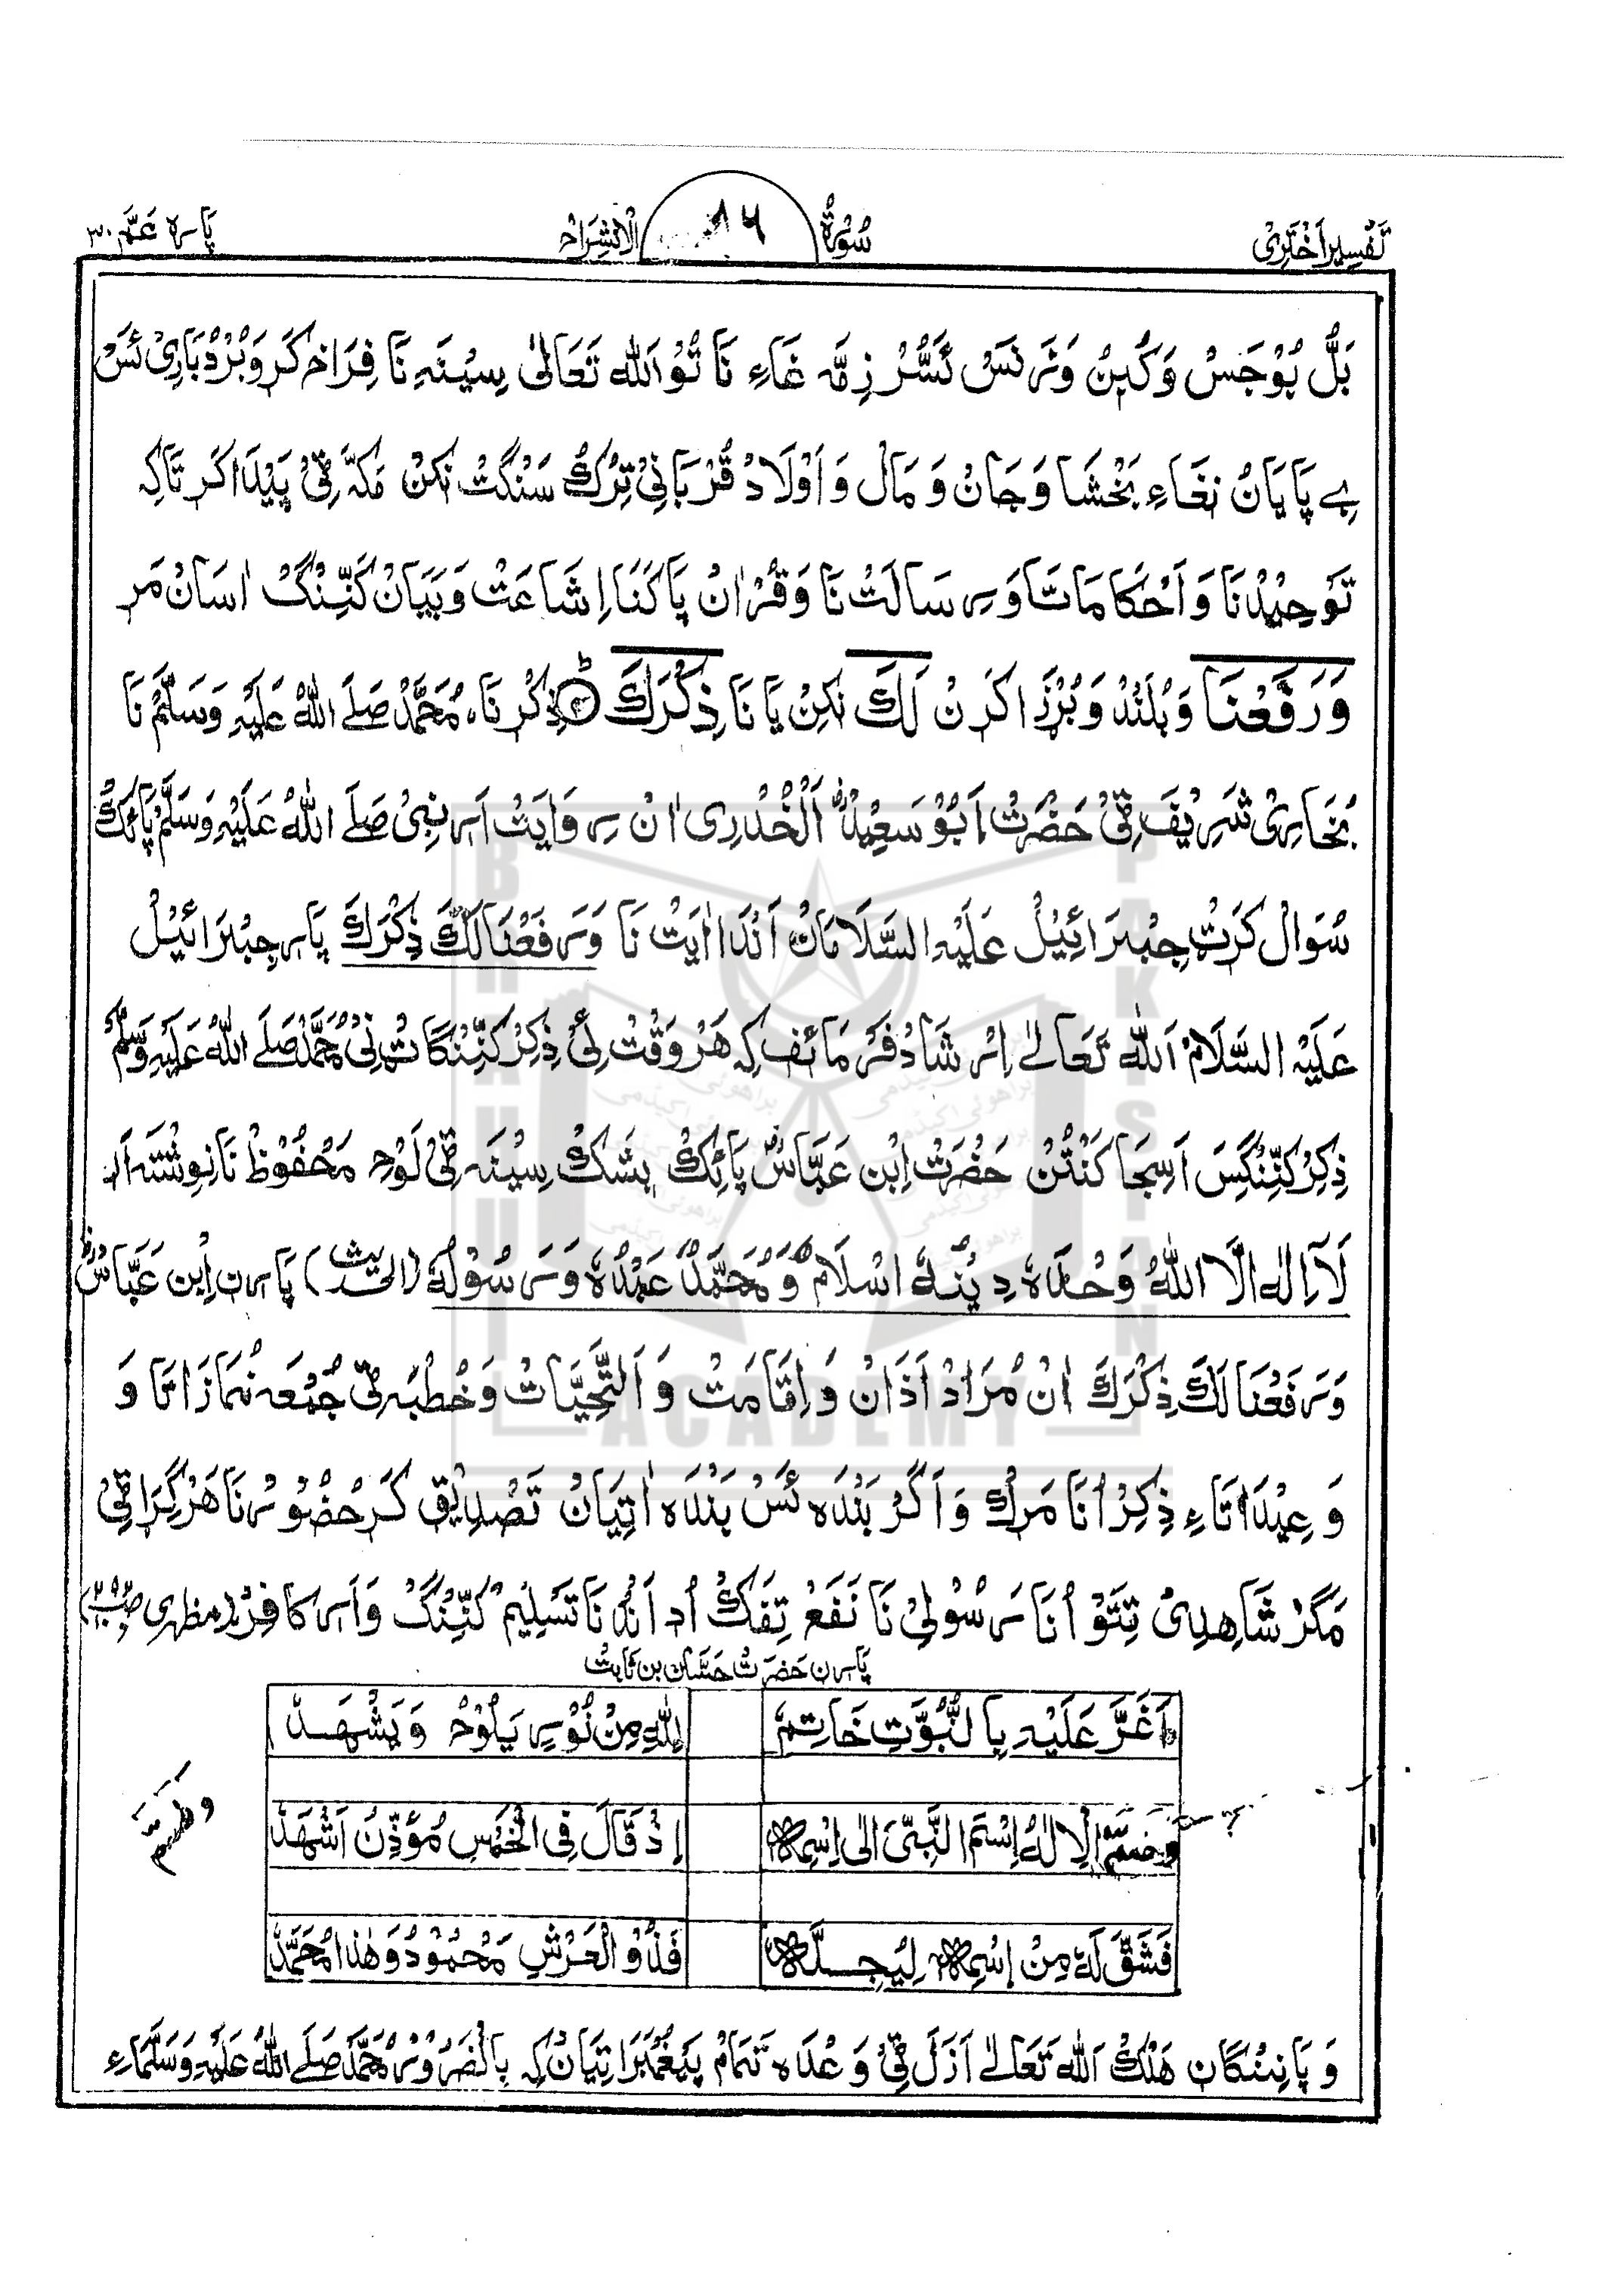 تَفْسِیْر اَخْتَرِیْ سُوْرَةُ الْاِنْشِرَاحْ پَارہ عَمَّ ۳۰
بَلُّ بُوْجَسْ وَکُبِنُ وَزنَسْ ئَسُّرْ ذِمَّہ غَاءِ نَا تُوْ اَللّٰه تَعَالٰی سِیْنَہِ نَا فِرَاخ کَر وَبُرْدْبَارِیْ ئَسْ
بے پَایَانُ نِغَاءِ بَخْشَا وَجَانْ وَمَالْ وَاَوْلَادْ قُرْبَانِیْ تِرُکْ سَنْگَتْ نِکِنْ مَکَّہ ٹِیْ پَیْدَا کَر تَاکِہ
تَوْحِیْدْنَا وَاَحْکَامَاتَا وَرِسَالَتْ نَا وَقُرْاٰنْ پَاکَنَا اِشَاعَتْ وَبَیَانْ کَنِّنْگ اٰسَانْ مَر
وَرَفَعْنَا وَبُلَنْدْ وَبُرْزَا کَرنْ لَكَ نِکِنْ یَا نَا ذِکْرَكَ ۞ ذِکْر نَا، مُحَمَّدْ صَلَے اللّٰهُ عَلَیْہِ وَسَلَّمْ نَا
بُخَارِیْ شَرِیْف ٹِیْ حَضْرَتْ اَبُوْ سَعِیْدْ اَلْخُدْرِی اٰنْ رِوَایَتْ اَرے نَبِیْ صَلَے اللّٰهُ عَلَیْہِ وَسَلَّمْ پَائِکْ
سُوَالْ کَرٹْ جِبْرَائِیْلْ عَلَیْہِ السَّلَامَانْ اَنْدَا اٰیَتْ نَا وَرَفَعْنَا لَكَ ذِکْرَكَ پَارے جِبْرَائِیْلْ
عَلَیْہِ السَّلَامْ اَللّٰه تَعَالٰے اِرْشَادْ فَرْمَائِف کِہ هَرْ وَقْتْ لِیْ ذِکِرْ کَنِّنْگَاٹْ نِیْ مُحَمَّدْ صَلَے اللّٰهُ عَلَیْہِ وَسَلَّمْ
ذِکِرْ کَنِّنْگِسَ اَسِجَا کَنْتُنْ حَضْرَتْ اِبْن عَبَّاسْ پَائِکْ بِشَکْ سِیْنَہ ٹِیْ لَوْح مَحْفُوْظْ نَا نِوِشْتَہ اَر
لَآاِلٰهَ اِلَّا اللّٰهُ وَحْدَہٗ دِیْنُہٗ اِسْلَام وَمُحَمَّدٌ عَبْدُہٗ وَرَسُوْلُہٗ (الحدیث) پَارنْ اِبْن عَبَّاسْ
وَرَفَعْنَا لَكَ ذِکْرَكَ اٰنْ مُرَادْ اَذَانْ وَاِقَامَتْ وَاَلتَّحِیَّاتْ وَخُطْبَہ ٹِیْ جُمْعَہ نُمَازَاتَا وَ
وَعِیْدَاتَاءِ ذِکِرْ اُنَا مَرِکْ وَاَگَرْ بَنْدَہ ئَسْ بَنْدَہ اٰتِیَانْ تَصْدِیْق کَر حُضُوْر نَا هَرْگِرَا ٹِیْ
مَگَرْ شَاهِدِیْ تِتَوْ اُنَا رَسُوْلِیْ نَا نَفَعْ تِفَکْ اُدْ اَنُہ نَا تَسْلِیْم کَنِّنْگْ وَاَرے کَافِرْ (مظہری)
پَارن حَضَرَتْ حَسَّان بِن ثَابِتْ
اَغَرَّ عَلَیْہِ بِالنُّبُوَّتِ خَاتِمٌ لِلّٰہِ مِنْ نُوْرٍ یَلُوْحُ وَیَشْهَدٗ
وَضَمَّ الْاِلٰہُ اِسْمَ النَّبِیِّ اِلٰی اِسْمِہٖ اِذْ قَالَ فِی الْخَمْسِ مُؤَذِّنُ اَشْهَدٗ
فَشَقَّ لَہٗ مِنْ اِسْمِہٖ لِیُجِلَّہٗ فَذُو الْعَرْشِ مَحْمُوْدُ وَهٰذَا مُحَمَّدٗ
وَپَانِنْگَان هَلْکُ اللّٰه تَعَالٰے اَزَلْ ٹِیْ وَعْدَہ تَمَامْ پَیْغَمْبَرَاتِیَانْ کِہ بِالْضَرُوْر مُحَمَّدْ صَلَے اللّٰهُ عَلَیْہِ وَسَلَّمَاءِ